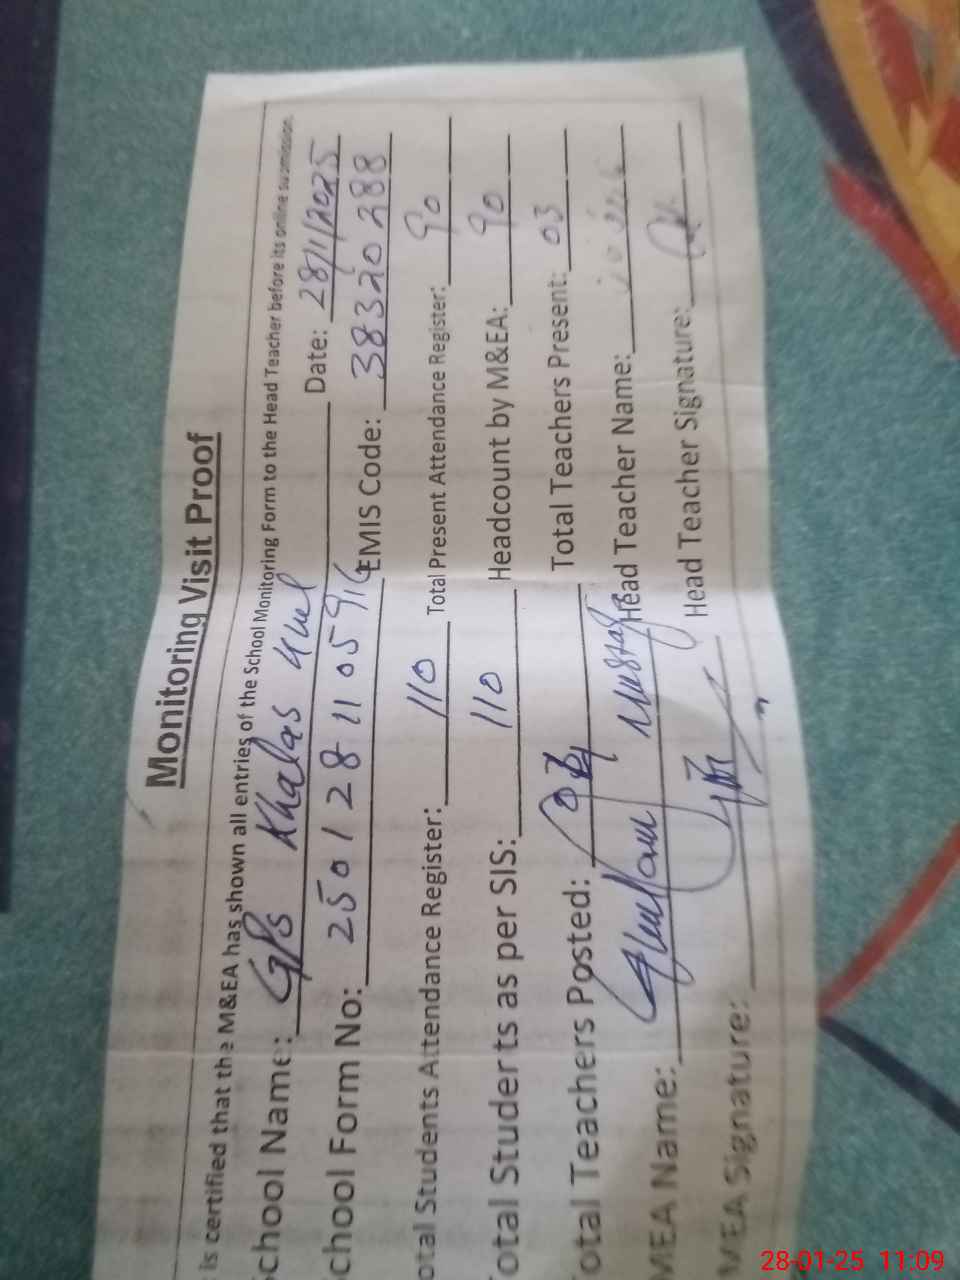 Monitoring Visit Proof
is certified that the M&EA has shown all entries of the School Monitoring Form to the Head Teacher before its online submission.
chool Name: GPS Khalas Date: 28/1/2025
chool Form No: 2501281105916 EMIS Code: 38320288
otal Students Attendance Register: 110 Total Present Attendance Register: 90
otal Students as per SIS: 110 Headcount by M&EA: 90
otal Teachers Posted: Total Teachers Present: 03
MEA Name: Ghulam Mustafa Head Teacher Name:
MEA Signature: Head Teacher Signature:
28-01-25 11:09